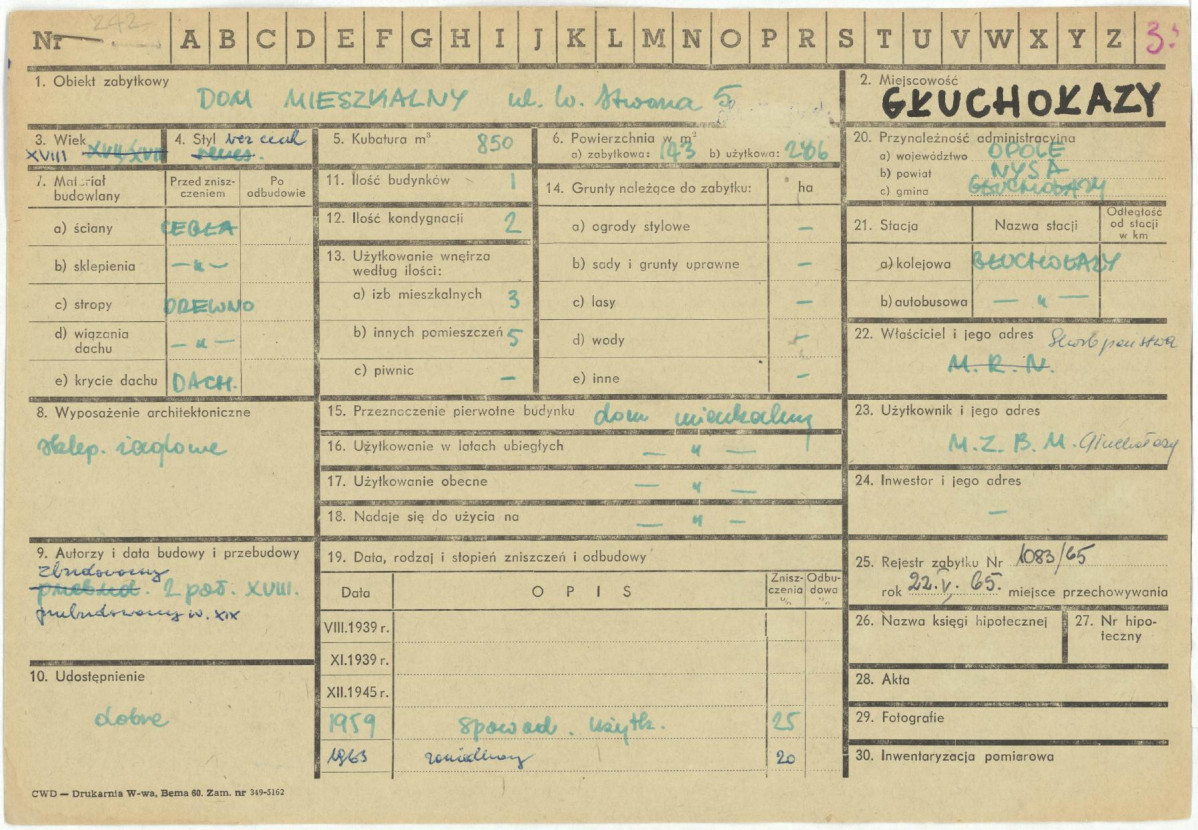 Nr 242 A B C D E F G H I J K L M N O P R S T U V W X Y Z 3.
1. Obiekt zabytkowy
DOM MIESZKALNY ul. W. Stwosza 5
2. Miejscowość
GŁUCHOŁAZY
3. Wiek
XVIII XVII/XVIII
4. Styl bez cech
renes.
5. Kubatura m³ 850
6. Powierzchnia w m²
a) zabytkowa: 143 b) użytkowa: 286
20. Przynależność administracyjna
a) województwo OPOLE
b) powiat NYSA
c) gmina GŁUCHOŁAZY
7. Materiał budowlany
Przed zniszczeniem
Po odbudowie
a) ściany CEGŁA
b) sklepienia — " —
c) stropy DREWNO
d) wiązania dachu — " —
e) krycie dachu DACH.
11. Ilość budynków 1
12. Ilość kondygnacji 2
13. Użytkowanie wnętrza według ilości:
a) izb mieszkalnych 3
b) innych pomieszczeń 5
c) piwnic —
14. Grunty należące do zabytku: ha
a) ogrody stylowe —
b) sady i grunty uprawne —
c) lasy —
d) wody —
e) inne —
21. Stacja
Nazwa stacji
Odległość od stacji w km
a) kolejowa GŁUCHOŁAZY
b) autobusowa — " —
22. Właściciel i jego adres Skarb państwa
M. R. N.
8. Wyposażenie architektoniczne
sklep. żaglowe
15. Przeznaczenie pierwotne budynku dom mieszkalny
16. Użytkowanie w latach ubiegłych — " —
17. Użytkowanie obecne — " —
18. Nadaje się do użycia na — " —
23. Użytkownik i jego adres
M. Z. B. M. Głuchołazy
24. Inwestor i jego adres
—
9. Autorzy i data budowy i przebudowy
zbudowany
przebud. 2 poł. XVIII.
przebudowany w. XIX
10. Udostępnienie
dobre
19. Data, rodzaj i stopień zniszczeń i odbudowy
Data
OPIS
Zniszczenia %
Odbudowa %
VIII.1939 r.
XI.1939 r.
XII.1945 r.
1959 spowod. użytk. 25
1963 20
25. Rejestr zabytku Nr 1083/65
rok 22.V.65. miejsce przechowywania
26. Nazwa księgi hipotecznej
27. Nr hipoteczny
28. Akta
29. Fotografie
30. Inwentaryzacja pomiarowa
CWD — Drukarnia W-wa, Bema 60. Zam. nr 349-5162